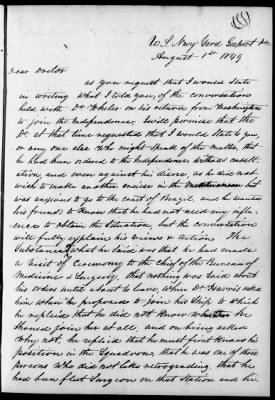 U. S. Navy Yard Gosport Va
August 1st 1849
Dear Doctor
as you request that I would state
in writing what I told you, of the conversation
held with Dr Whelan on his return from Washington
to join the Independence, I will premise that the
Dr at that time requested that I would state to you,
or any one else who might speak of the matter, that
he had been ordered to the Independence without consult-
ation, and even against his desire, as he did not
wish to make another cruise in the Mediterranean but
was anxious to go to the coast of Brazil, and he wanted
his friends to know that he had not used any influ-
ence to obtain the situation, but the conversation
will fully explain his views & action. The
substance of what he said was that he had made
a visit of ceremony to the Chief of the Bureau of
Medicine & Surgery, that nothing was said about
his orders until about to leave, when Dr Harris asked
him when he proposed to join his Ship to which
he replied that he did not know whether he
should join her at all, and on being asked
why not, he replied that he must first know his
position in the Squadron, that he was one of those
persons who did not like retrograding, that he
had been fleet Surgeon on that Station and he